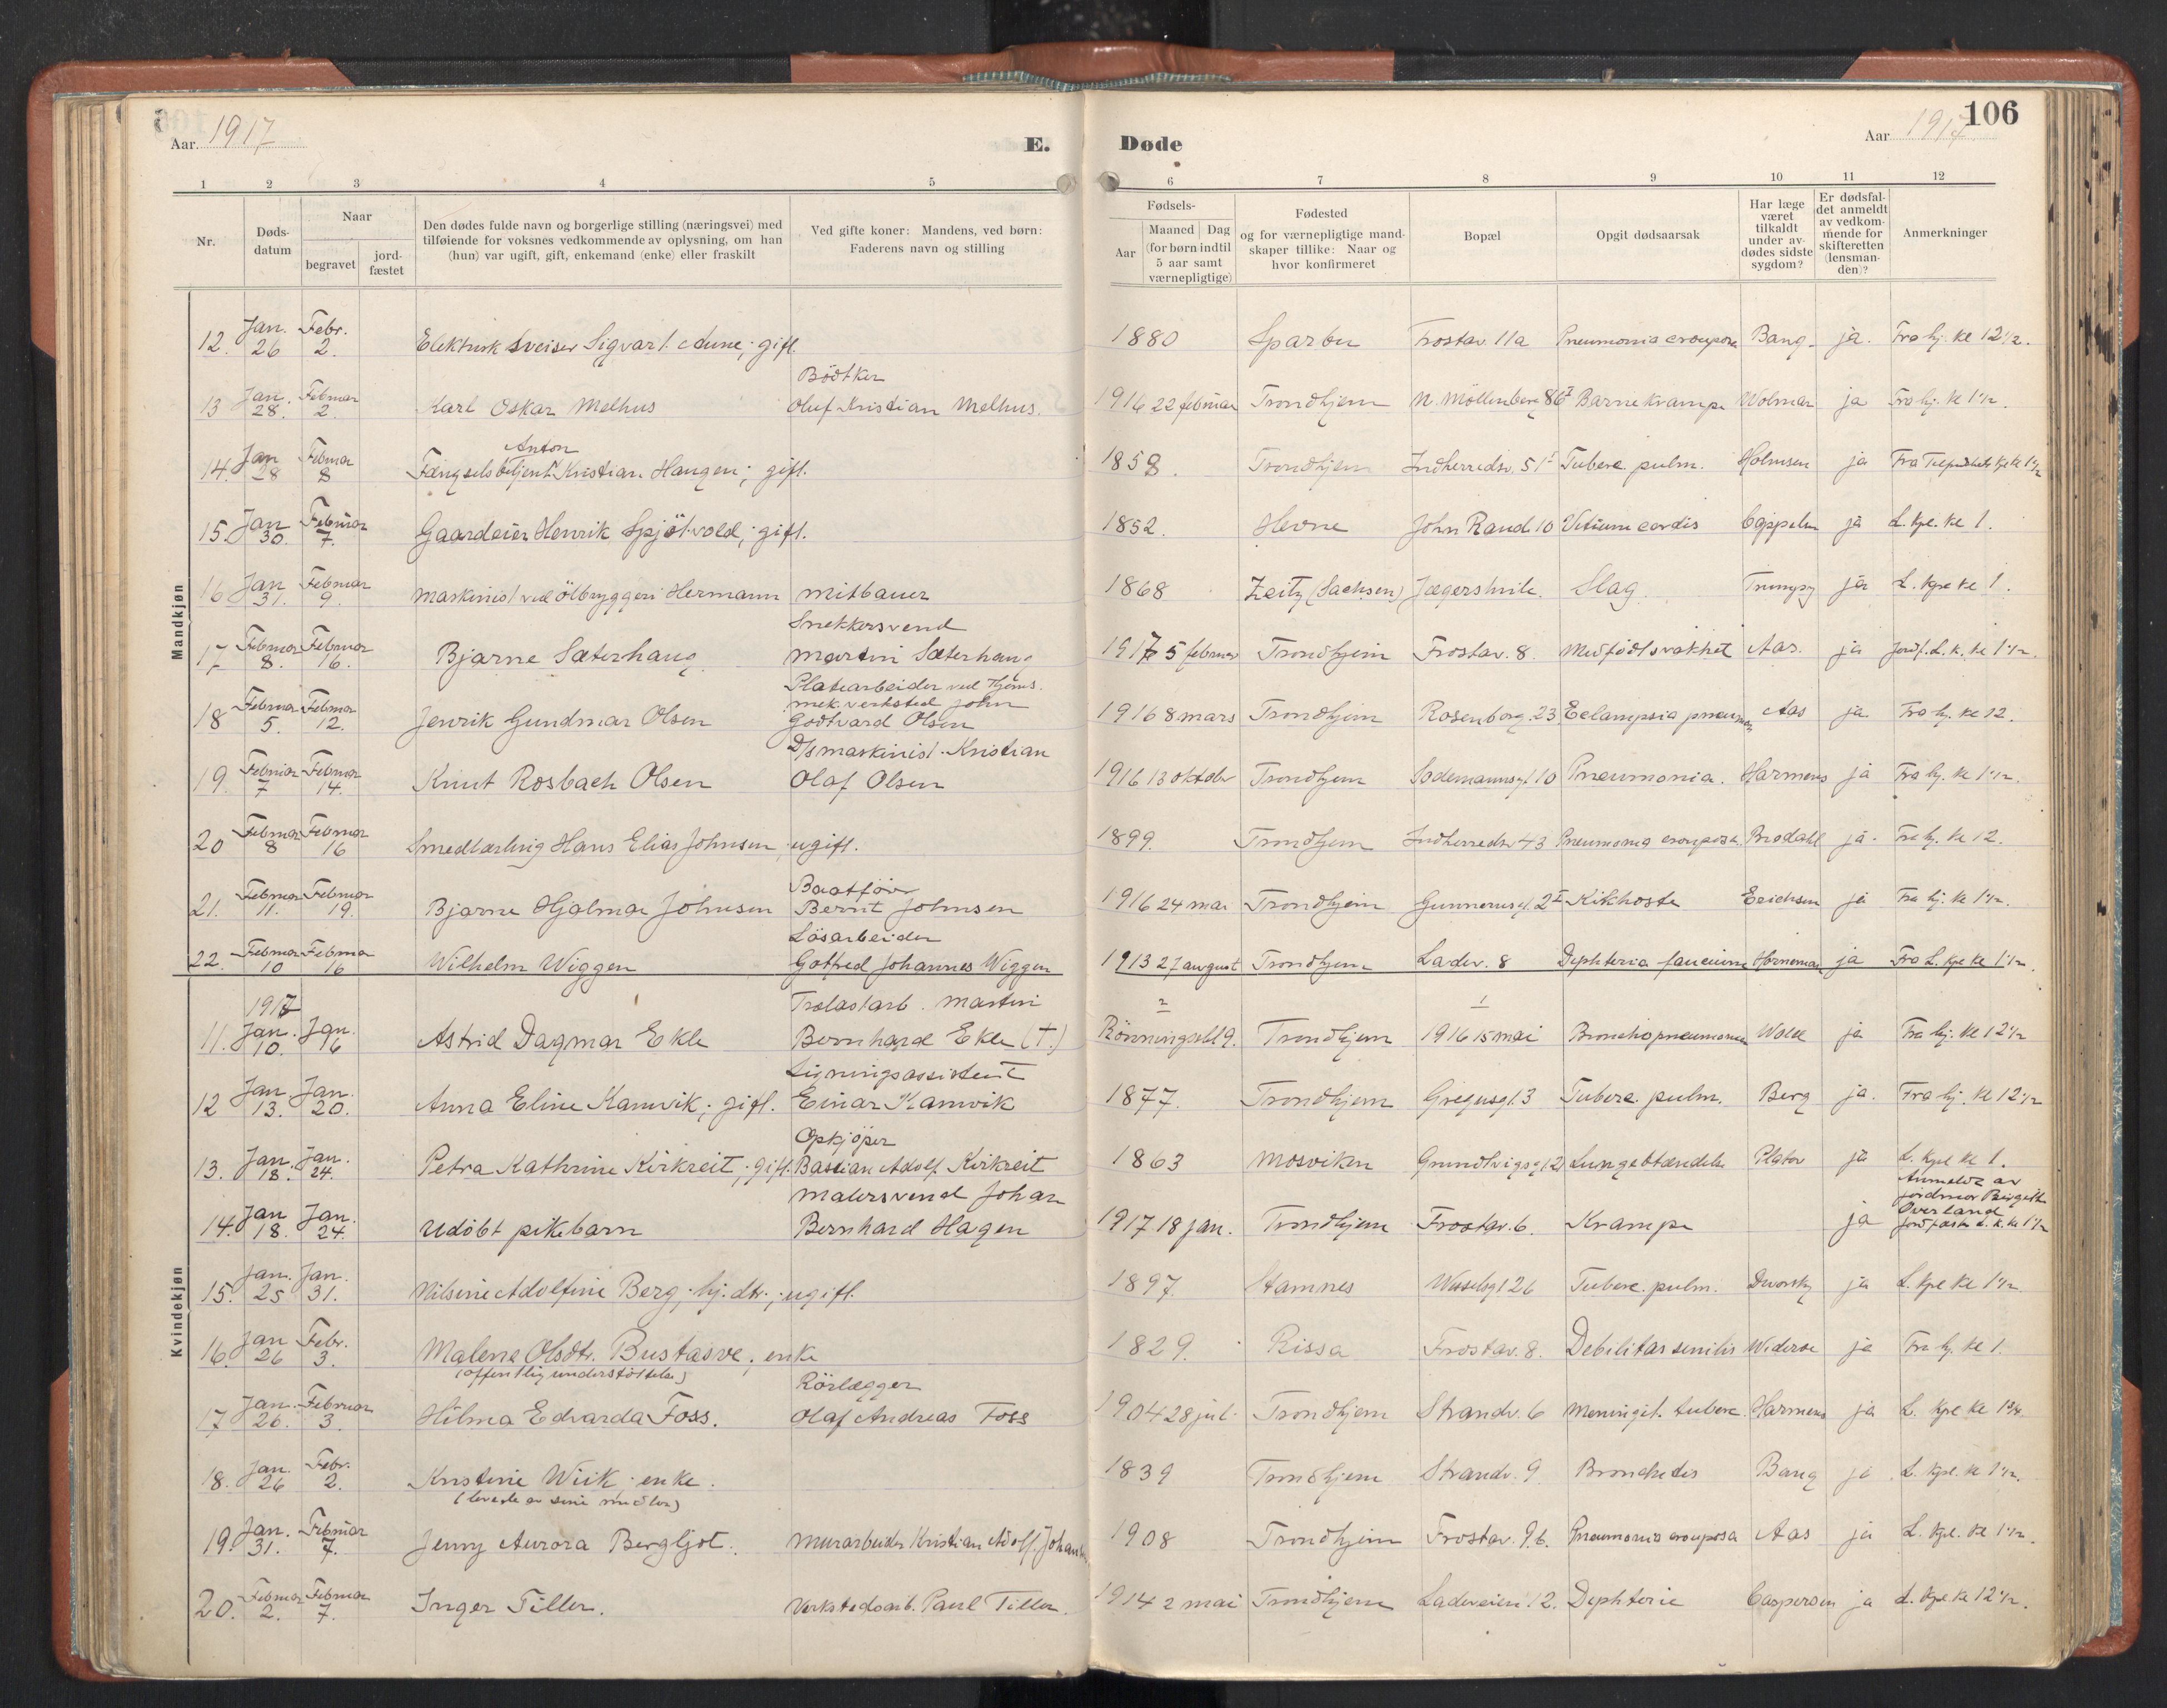 Aar. 1917
E.
1 2 3 4 5
Nr.
Døds-
datum
Naar
begravet
jord-
fæstet
Den dødes fulde navn og borgerlige stilling (næringsvei) med
tilføiende for voksnes vedkommende av oplysning, om han
(hun) var ugift, gift, enkemand (enke) eller fraskilt
Ved gifte koner: Mandens, ved børn:
Faderens navn og stilling
Døde
Aar 1917
106
6 7 8 9 10 11 12
Fødsels-
Aar
Maaned Dag
(for børn indtil
5 aar samt
værnepligtige)
Fødested
og for værnepligtige mand-
skaper tillike: Naar og
hvor konfirmeret
Bopæl
Opgit dødsaarsak
Har læge
været
tilkaldt
under av-
dødes sidste
sygdom?
Er dødsfal-
det anmeldt
av vedkom-
mende for
skifteretten
(lensman-
den)?
Anmerkninger
Mandkjøn
Jan. Febr.
12. 26 2. Elektrisk sveiser Sigvart Aune; gift. 1880 Sparbu Frostav. 11a Pneumonia crouposa Bang. ja. Fra hj. kl 12½.
Bödtker
Jan. Februar
13 28. 2. Karl Oskar Melhus Oluf Kristian Melhus. 1916 22 februar Trondhjem N. Möllenberg 86 I Barnekrampe Wolmar ja Fra hj. kl 1½.
Anton
Jan Februar
14. 28 8 Fængselsbetjent Kristian Haugen; gift. 1858. Trondhjem Indherredsv. 51 I Tuberc. pulm. Holmsen ja Fra kpl kl 1½
Jan Februar
15. 30. 7. Gaardeier Henrik Spjötvold; gift. 1852. Hevne John Rand. 10 Vitium cordis Cappelen ja L. kpl. kl 1.
Jan Februar
16 31. 9. Maskinist ved ölbryggeri Hermann Mitbauer 1868 Zeitz (Sachsen) Jægershvile. Slag Trumpy ja L. kpl kl 1.
Snekkersvend
Februar Februar
17 8. 16. Bjarne Sæterhaug Martin Sæterhaug 1917 5 februar Trondhjem Frostav. 8. Medfödt svakhet Aas. ja jordf. L. k. kl 1½.
Platearbeider ved Thjems.
mek. verksted John
Februar Februar
18 5. 12. Jenrik Gundmar Olsen Godtvard Olsen 1916 8 mars Trondhjem Rosenborg. 23 Eclampsia pneumon Aas ja Fra hj. kl 12.
D/s maskinist Kristian
Februar Februar
19. 7 14. Knut Rosbach Olsen Olaf Olsen 1916 13 oktober Trondhjem Sodemannsgt. 10 Pneumonia. Harmens ja Fra hj. kl 1½.
Februar Februar
20 8 16 Smedlærling Hans Elias Johnsen, ugift. 1899. Trondhjem Indherredsv 43 Pneumonia crouposa. Brodahl ja. Fra hj. kl 12.
Baatförer
Februar Februar
21. 11. 19. Bjarne Hjalmar Johnsen Bernt Johnsen 1916 24 mai Trondhjem Gunnerusgt. 2 I Kikhoste Erichsen ja Fra hj. kl 1½.
Lösarbeider
Februar Februar
22. 10 16 Wilhelm Wiggen Gotfred Johannes Wiggen 1913 27 august Trondhjem Ladev. 8 Diphteria faucium Horneman ja Fra L. kpl kl 1½.
Kvindekjøn
1917 Trælastarb. Martin 2 1
Jan. Jan.
11. 10. 16 Astrid Dagmar Ekle Bernhard Ekle (†.) Rönningsbl 9. Trondhjem 1916 15 mai Bronchopneumonia Wold ja Fra hj. kl 12½
Ligningsassistent
Jan. Jan.
12 13. 20. Anna Eline Kamvik; gift. Einar Kamvik 1877. Trondhjem Gregusgt. 3 Tuberc. pulm. Berg ja. Fra hj. kl 12½
Opkjöper
Jan. Jan.
13. 18. 24. Petra Kathrine Kirkreit; gift. Bastian Adolf Kirkreit 1863 Mosviken Grundtvigsgt 2 Lungebetændelse Platou ja L. kpl kl 1.
Malersvend Johan Anmeldt av
jordmor Birgitte
Jan Jan. Overland
14. 18. 24. Udöbt pikebarn Bernhard Hagen 1917 18 jan. Trondhjem Frostav. 6. Krampe ja jordfæstet L. k. kl 1½
Jan. Jan.
15. 25 31. Nilsine Adolfine Berg; hj. dtr.; ugift. 1897. Stamnes Wesselsgt 26 Tuberc. pulm. Dworsky ja L. kpl kl 1½
Jan Febr.
16. 26 3. Malene Olsdtr. Bustasve, enke 1829. Rissa Frostav. 8. Debilitas senilis Wideröe ja Fra hj. kl 1.
(offentlig understöttelse)
Rörlægger
Jan. Februar
17 26. 3. Hilma Edvarda Foss. Olaf Andreas Foss 1904 28 juli Trondhjem Strandv. 6 Meningit. tuberc. Harmens ja L. kpl kl 1¾.
Jan. Febr.
18. 26 2. Kristine Wiik; enke. 1839 Trondhjem Strandv. 9. Bronchitis Bang ja L. kpl. kl 1½.
(levede av sine midler)
Jan. Februar
19. 31. 7. Jenny Aurora Bergljot. Murarbeider Kristian Adolf Johansen 1908 Trondhjem Frostav. 9.b. Pneumonia crouposa Aas ja L. kpl. kl 1½.
Februar Februar
20. 2. 7. Inger Tiller. Verkstedsarb. Paul Tiller. 1914 2 mai Trondhjem Ladeveien 12. Diphterie Caspersen ja L. kpl kl 12½.